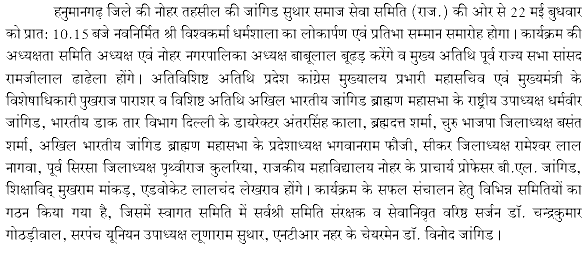 हनुमानगढ़ जिले की नोहर तहसील की जांगिड सुथार समाज सेवा समिति (राज.) की ओर से 22 मई बुधवार
को प्रात: 10.15 बजे नवनिर्मित श्री विश्वकर्मा धर्मशाला का लोकार्पण एवं प्रतिभा सम्मान समारोह होगा। कार्यक्रम की
अध्यक्षता समिति अध्यक्ष एवं नोहर नगरपालिका अध्यक्ष बाबूलाल बूढड़ करेंगे व मुख्य अतिथि पूर्व राज्य सभा सांसद
रामजीलाल ढाढेला होंगे। अतिविशिष्ट अतिथि प्रदेश कांग्रेस मुख्यालय प्रभारी महासचिव एवं मुख्यमंत्री के
विशेषाधिकारी पुखराज पाराशर व विशिष्ट अतिथि अखिल भारतीय जांगिड ब्राह्मण महासभा के राष्ट्रीय उपाध्यक्ष धर्मवीर
जांगिड, भारतीय डाक तार विभाग दिल्ली के डायरेक्टर अंतरसिंह काला, ब्रह्मदत्त शर्मा, चुरु भाजपा जिलाध्यक्ष बसंत
शर्मा, अखिल भारतीय जांगिड ब्राह्मण महासभा के प्रदेशाध्यक्ष भगवानराम फौजी, सीकर जिलाध्यक्ष रामेश्वर लाल
नागवा, पूर्व सिरसा जिलाध्यक्ष पृथ्वीराज कुलरिया, राजकीय महाविद्यालय नोहर के प्राचार्य प्रोफेसर बी.एल. जांगिड,
शिक्षाविद् मुखराम मांकड़, एडवोकेट लालचंद लेखराव होंगे। कार्यक्रम के सफल संचालन हेतु विभिन्न समितियों का
गठन किया गया है, जिसमें स्वागत समिति में सर्वश्री समिति संरक्षक व सेवानिवृत वरिष्ठ सर्जन डॉ. चन्द्रकुमार
गोठड़ीवाल, सरपंच यूनियन उपाध्यक्ष लूणाराम सुथार, एनटीआर नहर के चेयरमेन डॉ. विनोद जांगिड।